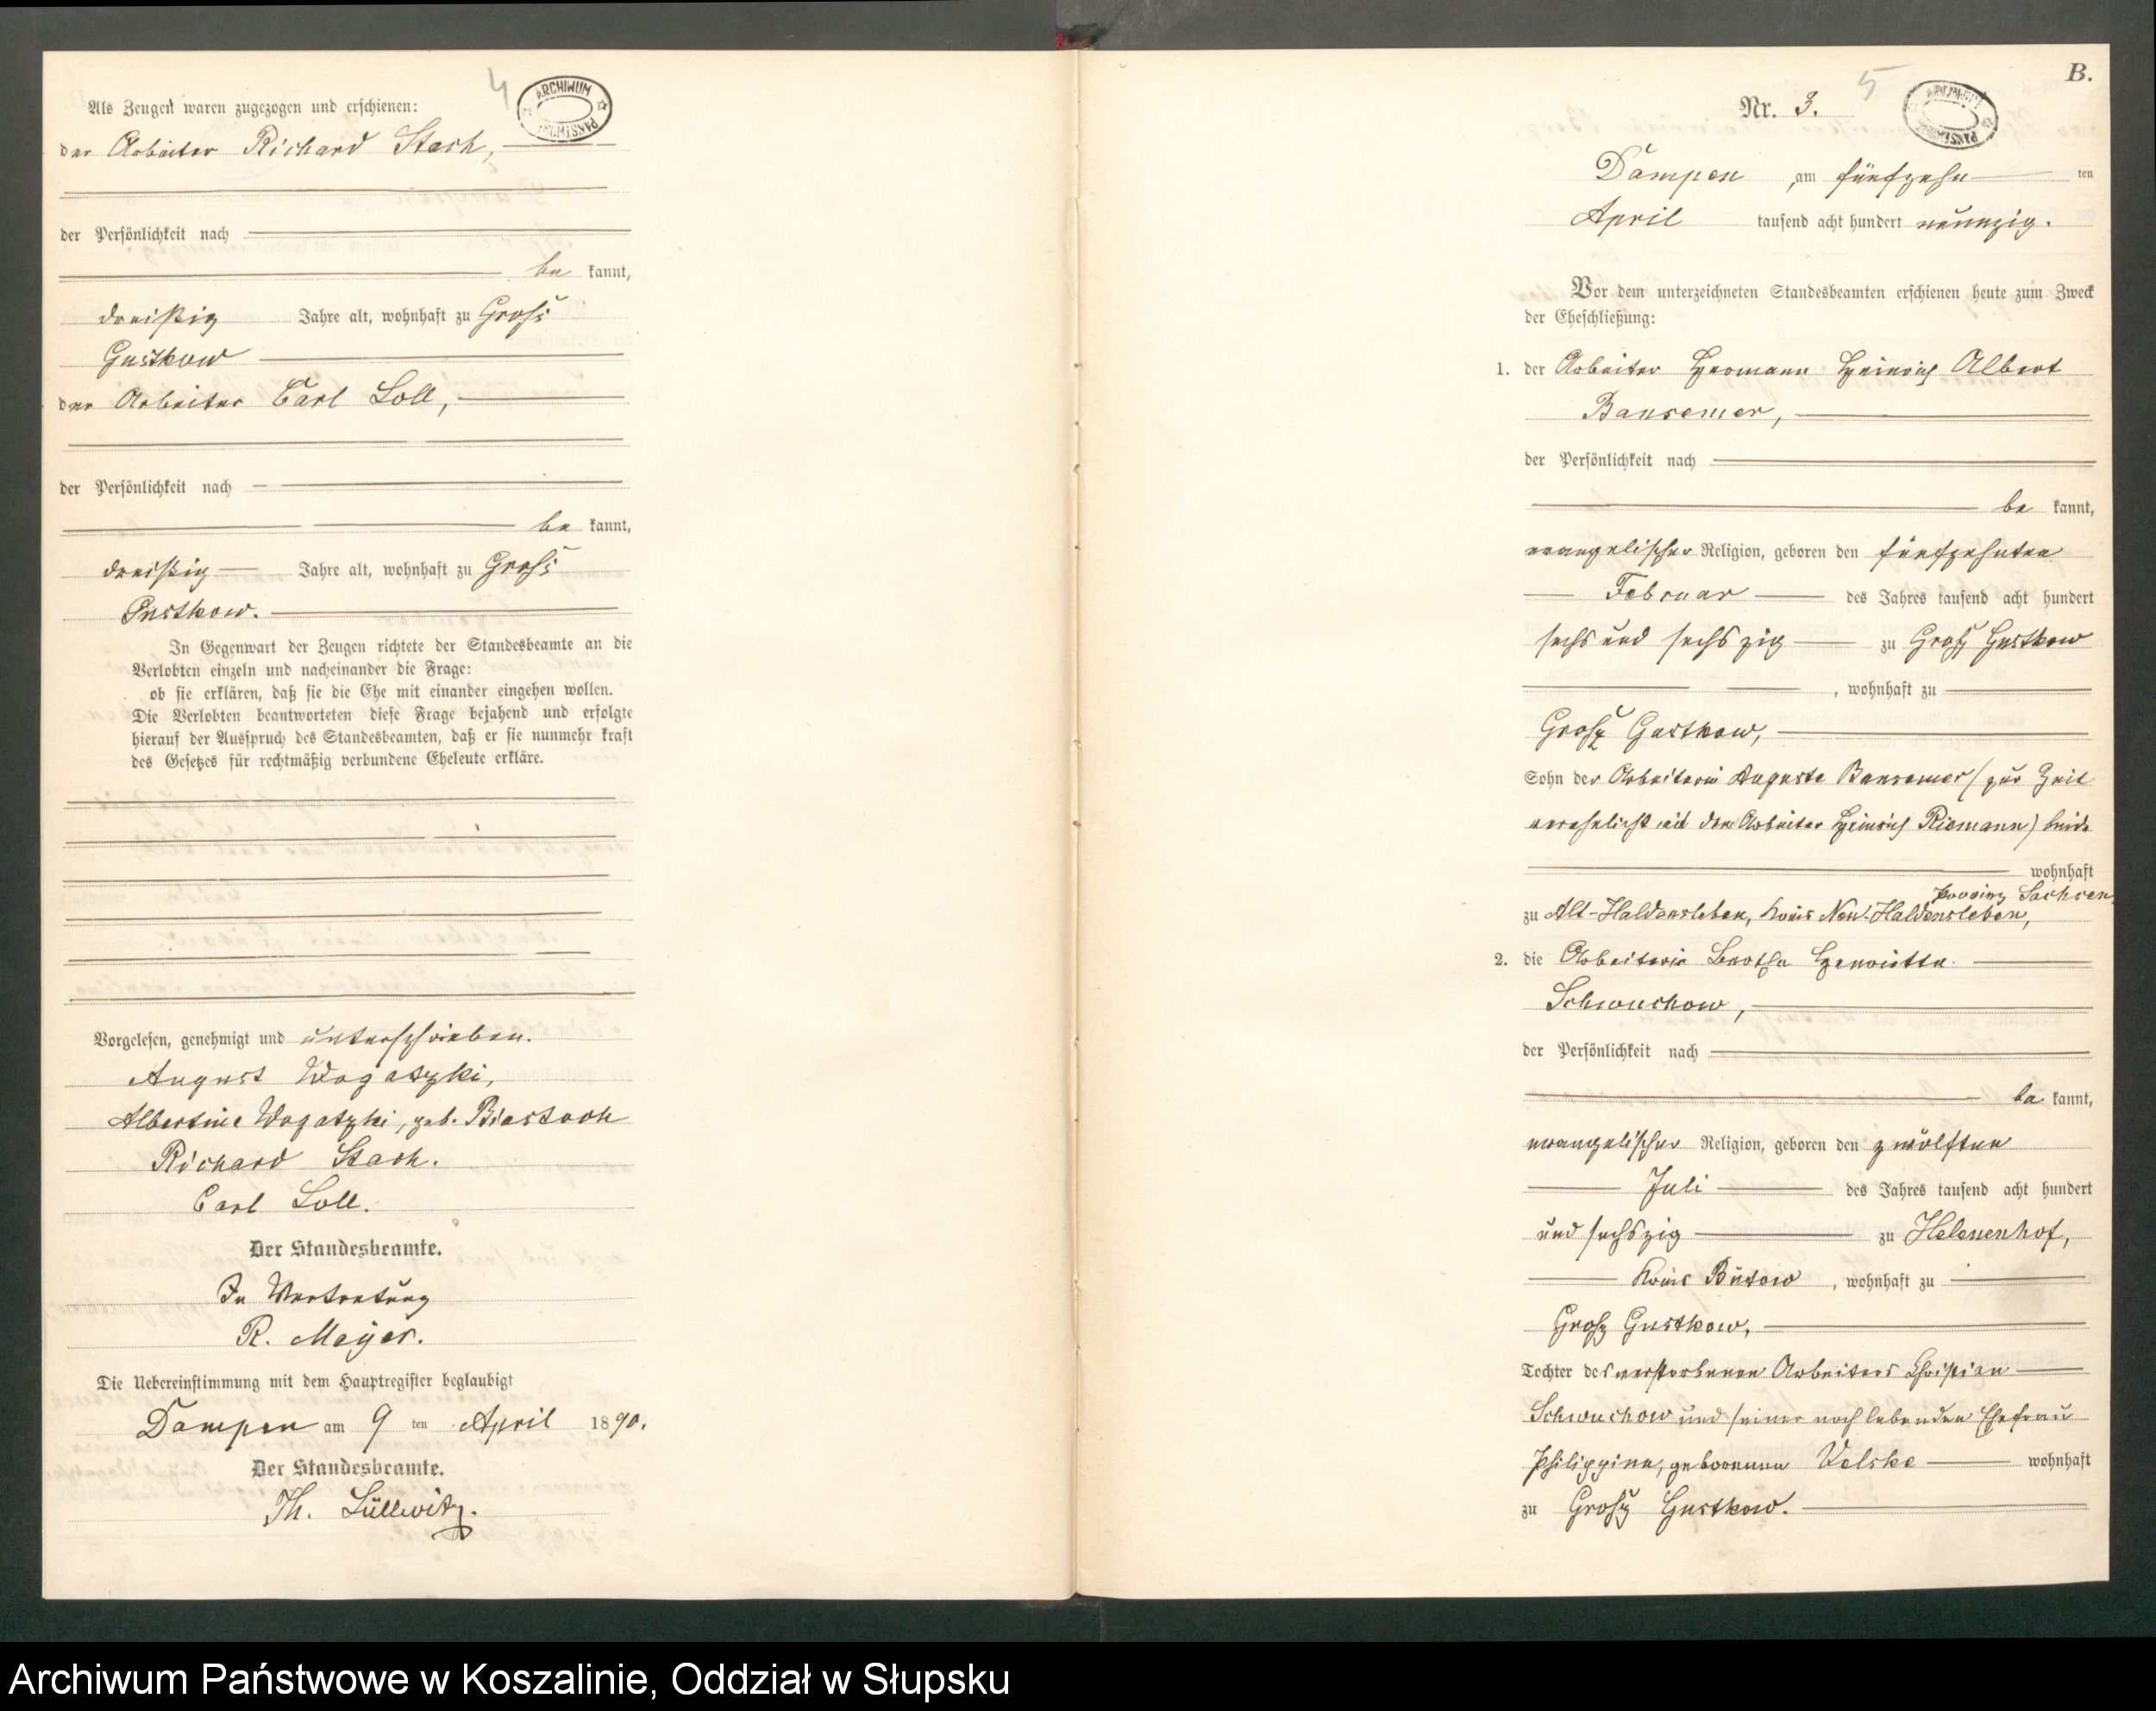 4
ARCHIWUM PAŃSTWOWE
Als Zeugen waren zugezogen und erschienen:
der Arbeiter Richard Stach,
der Persönlichkeit nach
be kannt,
dreißig Jahre alt, wohnhaft zu Groß
Gustkow
der Arbeiter Carl Soll,
der Persönlichkeit nach
be kannt,
dreißig Jahre alt, wohnhaft zu Groß
Gustkow.
In Gegenwart der Zeugen richtete der Standesbeamte an die
Verlobten einzeln und nacheinander die Frage:
ob sie erklären, daß sie die Ehe mit einander eingehen wollen.
Die Verlobten beantworteten diese Frage bejahend und erfolgte
hierauf der Ausspruch des Standesbeamten, daß er sie nunmehr kraft
des Gesetzes für rechtmäßig verbundene Eheleute erkläre.
Vorgelesen, genehmigt und unterschrieben.
August Wogatzki,
Albertine Wogatzki, geb. Biastoch
Richard Stach.
Carl Soll.
Der Standesbeamte.
In Vertretung
R. Meyer.
Die Uebereinstimmung mit dem Hauptregister beglaubigt
Dampen am 9 ten April 1890.
Der Standesbeamte.
Th. Lüllwitz.
B.
5
Nr. 3.
ARCHIWUM PAŃSTWOWE
Dampen, am fünfzehn ten
April tausend acht hundert neunzig.
Vor dem unterzeichneten Standesbeamten erschienen heute zum Zweck
der Eheschließung:
1. der Arbeiter Hermann Heinrich Albert
Bansemer,
der Persönlichkeit nach
be kannt,
evangelischer Religion, geboren den fünfzehnten
Februar des Jahres tausend acht hundert
sechs und sechszig zu Groß Gustkow
, wohnhaft zu
Groß Gustkow,
Sohn der Arbeiterin Auguste Bansemer (zur Zeit
verehelicht mit dem Arbeiter Heinrich Riemann) beide
wohnhaft
Provinz Sachsen,
zu Alt-Haldensleben, Kreis Neu-Haldensleben,
2. die Arbeiterin Bertha Henriette
Schwuchow,
der Persönlichkeit nach
be kannt,
evangelischer Religion, geboren den zwölften
Juli des Jahres tausend acht hundert
und sechszig zu Helenenhof,
Kreis Bütow, wohnhaft zu
Groß Gustkow,
Tochter des verstorbenen Arbeiters Christian
Schwuchow und seiner noch lebenden Ehefrau
Philippine, geborenen Velske wohnhaft
zu Groß Gustkow.
Archiwum Państwowe w Koszalinie, Oddział w Słupsku